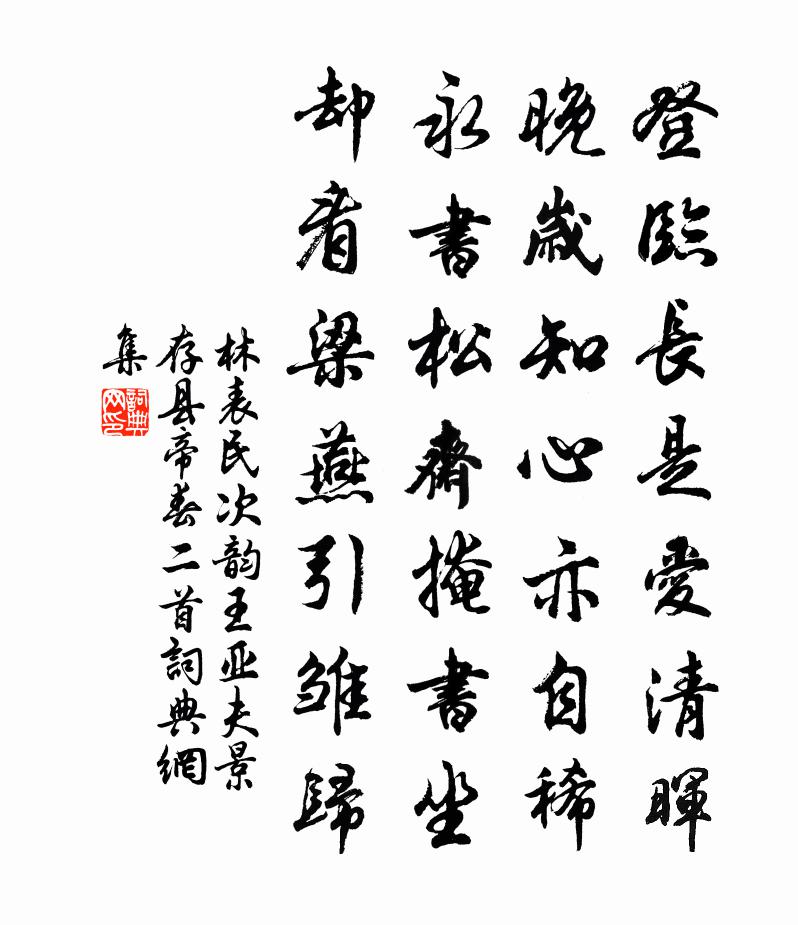 登臨長是愛清暉
晚歲知心亦自稀
永書松齋掩書坐
却看梁燕引雏歸
林表民次韵王亚夫景
存县帝春二首詞典網
集
詞典網印